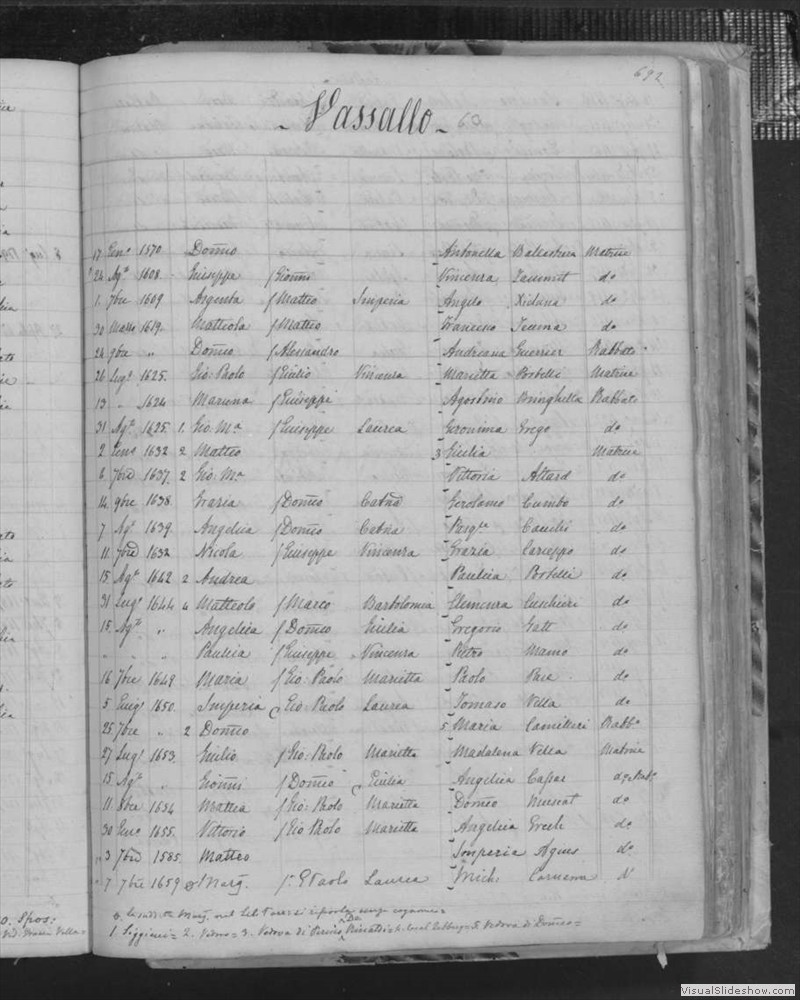 692
- Vassallo - 60
17 Genº 1570 Domco Antonella Balestrina Matrice
24 Agº 1608 Giuseppa f Gionni Vincenza Zammit do
1. 7bre 1609 Argenta f Matteo Imperia Angelo Xicluna do
30 Marzo 1619. Matteola f Matteo Francesco do
24 9bre " Domco f Alessandro Andreana Guerrier Rabbato
26 Lugº 1625. Gio: Paolo f Giulio Vincenza Marietta Bobelli Matrice
13 " 1624 Maruna f Giuseppe Agostino Bringhella Rabbato
31 Agº 1625. 1. Gio: Mª f Giuseppe Laurea Geronima Grego do
2 Genº 1632 2 Matteo 3 Giulia Matrice
6 7bre 1637. 2 Gio: Mª Vittoria Attard do
14 9bre 1638. Grazia f Domco Catña Gerolamo Cumbo do
7 Agº 1639. Angelica f Domco Catña do
11 7bre 1632 Nicola f Giuseppe Vincenza Grazia Caruppo do
15 Agº 1642 2 Andrea Paulica Bobelli do
31 Lugº 1644 4 Matteolo f Marco Bartolomea Cuschieri do
15. Agº " Angelica f Domco Giulia Gregorio Gatt do
" " " Paulica f Giuseppe Vincenza Pietro Mamo do
16 7bre 1649. Maria f Gio: Paolo Marietta Paolo Pace do
5 Giugº 1650. Imperia Gio: Paolo Laurea Tomaso Vella do
25 7bre " 2 Domco 5 Maria Camilleri Rabbº
27 Lugº 1653. Giulio f Gio: Paolo Marietta Madalena Vella Matrice
15 Agº " Gionni f Domco Giulia Angelica Capac do Rabº
11 1654 Mattea f Gio: Paolo Marietta Domco Muscat do
30 Genº 1655. Vittorio f Gio Paolo Marietta Angelica Grech do
3 7bre 1585. Matteo Imperia Agius do
7 7bre 1659 Marg. Paolo Laurea Mich.
1. Siggieni = 2. Vedovo = 3. Vedova di = 5. Vedova di Domco =
o. Spos:
Vella =
VisualSlideshow.com